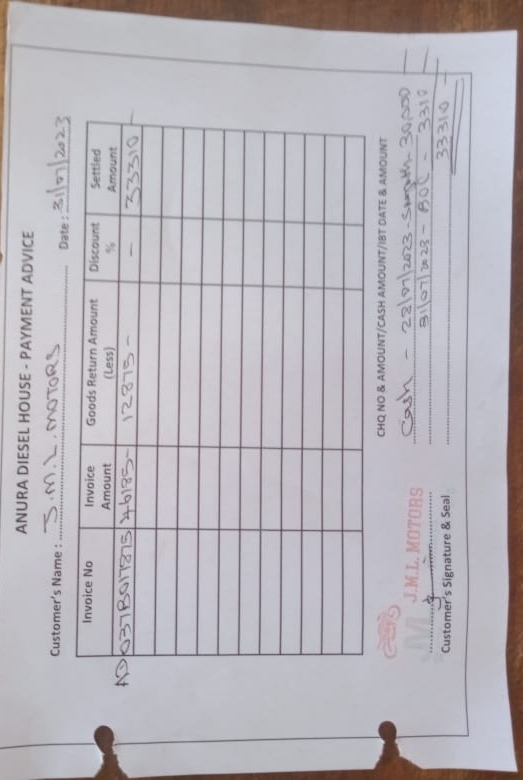 ANURA DIESEL HOUSE - PAYMENT ADVICE
Customer's Name : J.M.L. MOTORS Date : 31/07/2023
Invoice No Invoice Amount Goods Return Amount (Less) Discount % Settled Amount
46185- 12875 - - 33310 -
CHQ NO & AMOUNT/CASH AMOUNT/IBT DATE & AMOUNT
Cash - 28/07/2023 - 30,000
31/07/2023 - BOC - 3310
33310
J.M.L. MOTORS
Customer's Signature & Seal